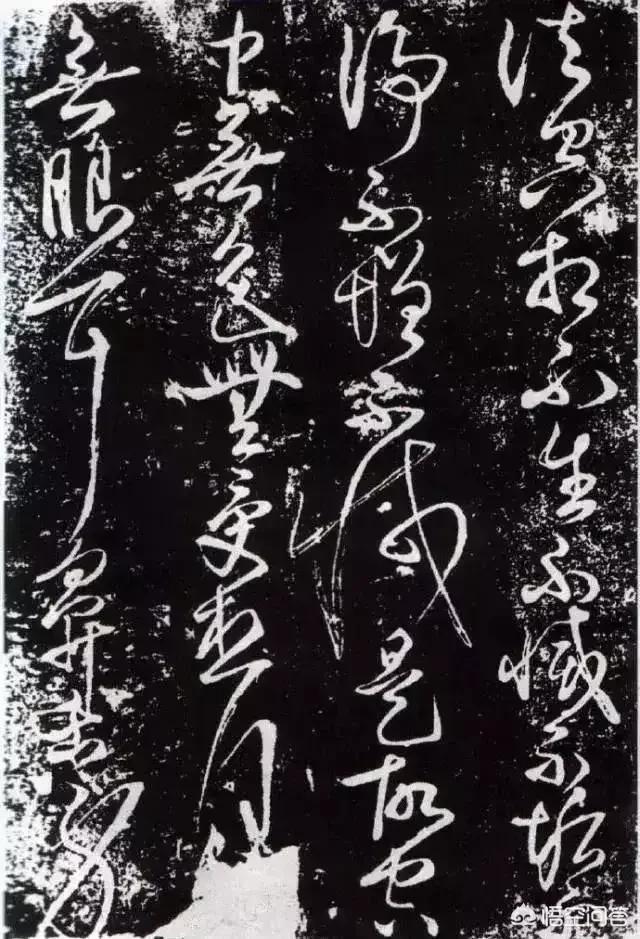 法空相不生不滅不垢不
淨不增不減是故空
中無色無受想行
無眼耳鼻舌身
悟空问答